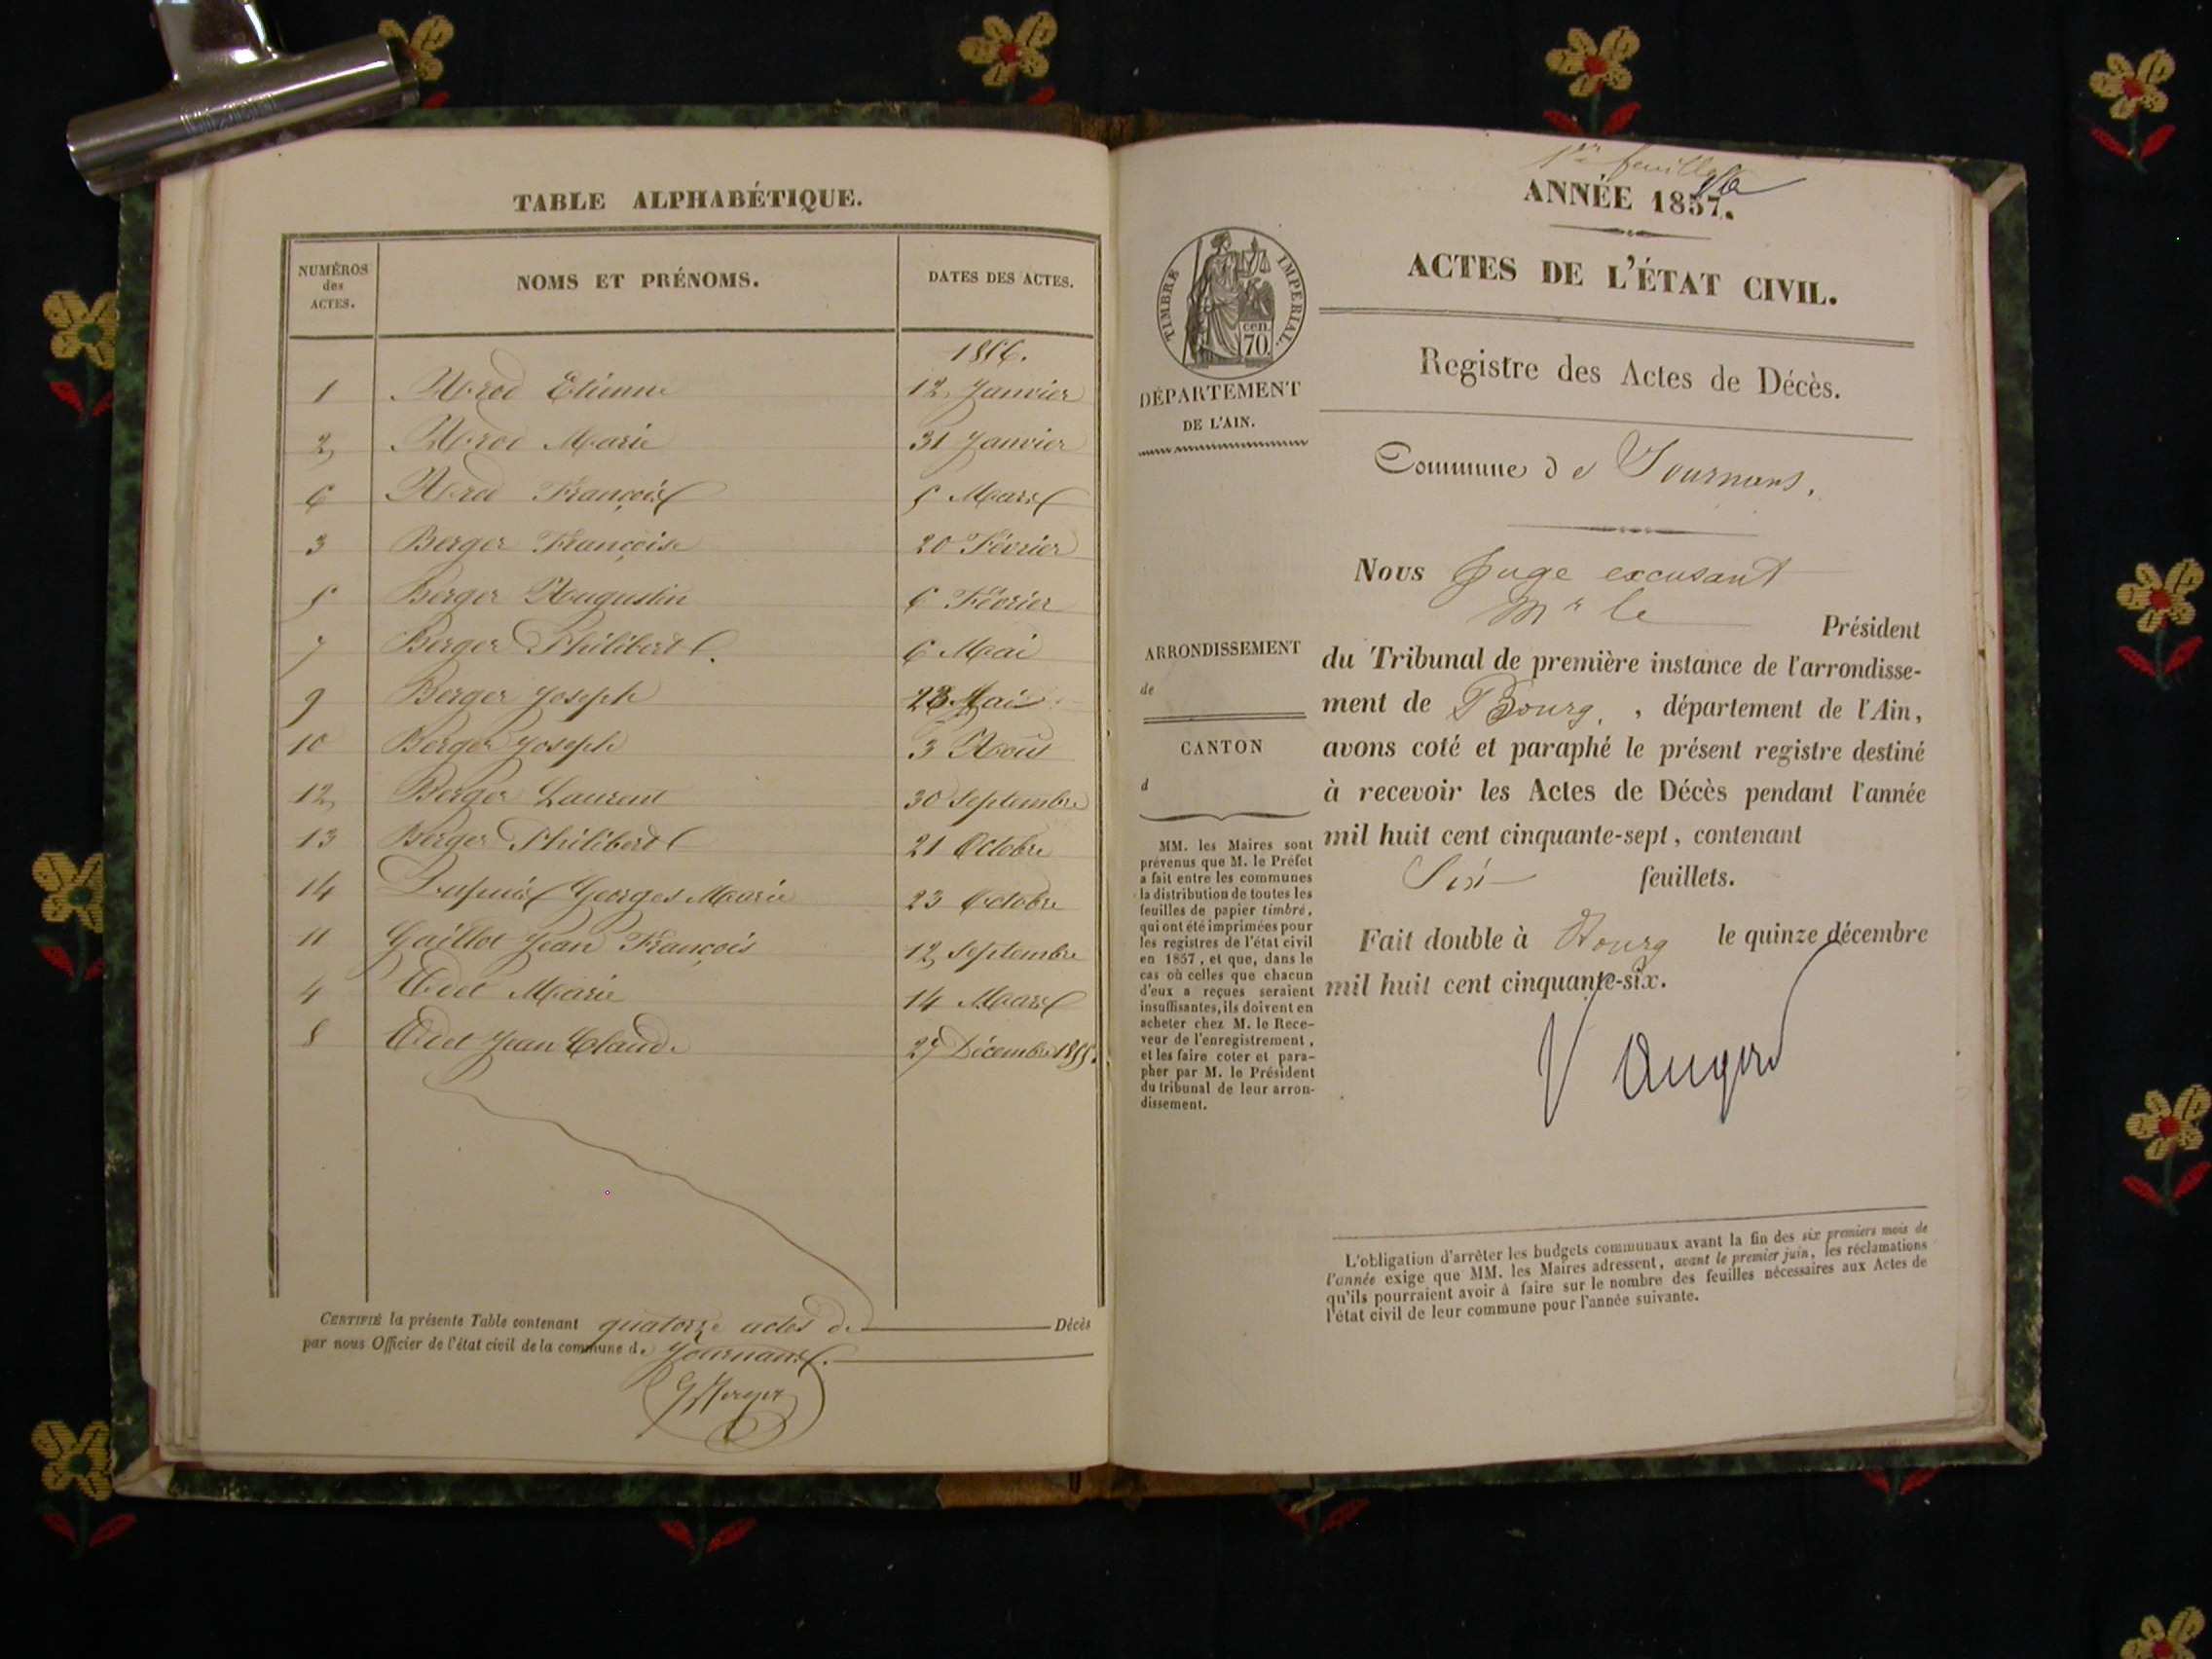 TABLE ALPHABÉTIQUE.
NUMÉROS des ACTES. NOMS ET PRÉNOMS. DATES DES ACTES.
1856.
1 Etienne 12 Janvier
2 Marie 31 Janvier
6 François 5 Mars
3 Berger Françoise 20 Février
5 Berger Augustin 6 Février
7 Berger Philibert 6 Mai
9 Berger Joseph Mai
10 Berger Joseph 3 Août
12 Berger Laurent 30 Septembre
13 Berger Philibert 21 Octobre
14 Dupuis Georges Marie 23 Octobre
11 Gaillot Jean François 12 Septembre
4 Odet Marie 14 Mars
8 Odet Jean Claude 27 Décembre 1855.
CERTIFIÉ la présente Table contenant quatorze actes de Décès
par nous Officier de l'état civil de la commune de Journans.
1er feuillet
ANNÉE 1857.
ACTES DE L'ÉTAT CIVIL.
TIMBRE IMPERIAL.
cen.
70.
DÉPARTEMENT
DE L'AIN.
Registre des Actes de Décès.
Commune de Journans.
Nous Juge excusant
Mr le
Président
ARRONDISSEMENT
de
du Tribunal de première instance de l'arrondisse-
ment de Bourg, , département de l'Ain,
avons coté et paraphé le présent registre destiné
à recevoir les Actes de Décès pendant l'année
mil huit cent cinquante-sept, contenant
Six feuillets.
Fait double à Bourg le quinze décembre
mil huit cent cinquante-six.
CANTON
d
MM. les Maires sont
prévenus que M. le Préfet
a fait entre les communes
la distribution de toutes les
feuilles de papier timbré,
qui ont été imprimées pour
les registres de l'état civil
en 1857, et que, dans le
cas où celles que chacun
d'eux a reçues seraient
insuffisantes, ils doivent en
acheter chez M. le Rece-
veur de l'enregistrement,
et les faire coter et para-
pher par M. le Président
du tribunal de leur arron-
dissement.
L'obligation d'arrêter les budgets communaux avant la fin des six premiers mois de
l'année exige que MM. les Maires adressent, avant le premier juin, les réclamations
qu'ils pourraient avoir à faire sur le nombre des feuilles nécessaires aux Actes de
l'état civil de leur commune pour l'année suivante.